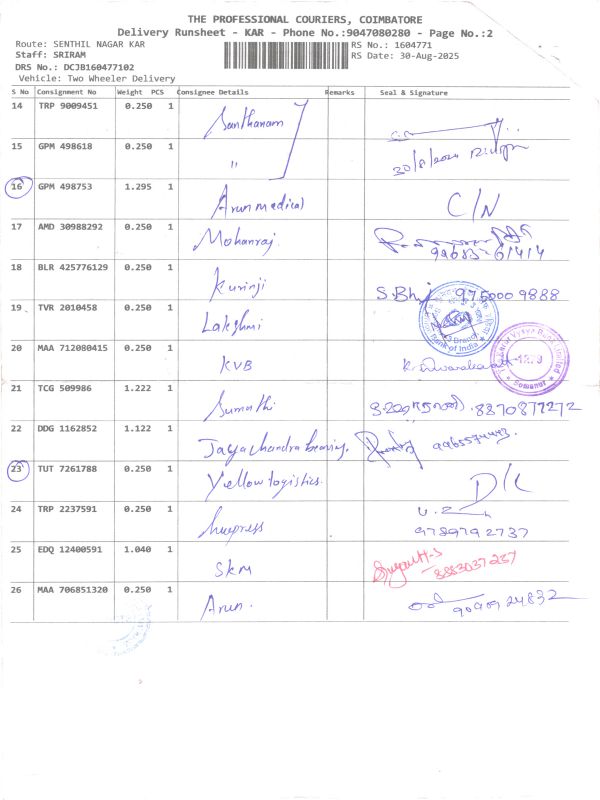 THE PROFESSIONAL COURIERS, COIMBATORE
Delivery Runsheet - KAR - Phone No.:9047080280 - Page No.:2
Route: SENTHIL NAGAR KAR
RS No.: 1604771
Staff: SRIRAM
RS Date: 30-Aug-2025
DRS No.: DCJB160477102
Vehicle: Two Wheeler Delivery
S No Consignment No Weight PCS Consignee Details Remarks Seal & Signature
14 TRP 9009451 0.250 1 Santhanam
15 GPM 498618 0.250 1 "
30/8/2024
16 GPM 498753 1.295 1 Arun medical C/N
17 AMD 30988292 0.250 1 Mohanraj.
99683-61414
18 BLR 425776129 0.250 1 Kurinji S.Bhj 975000 9888
19 TVR 2010458 0.250 1 Lakshmi
Bank of India
20 MAA 712080415 0.250 1 KVB
21 TCG 509986 1.222 1 Sumathi 8870877272
22 DDG 1162852 1.122 1 Jaya chandra bearing. 9965574443.
23 TUT 7261788 0.250 1 Yellow logistics. D/L
24 TRP 2237591 0.250 1
9789792737
25 EDQ 12400591 1.040 1 SKM
8883037237
26 MAA 706851320 0.250 1 Arun. 9090924832